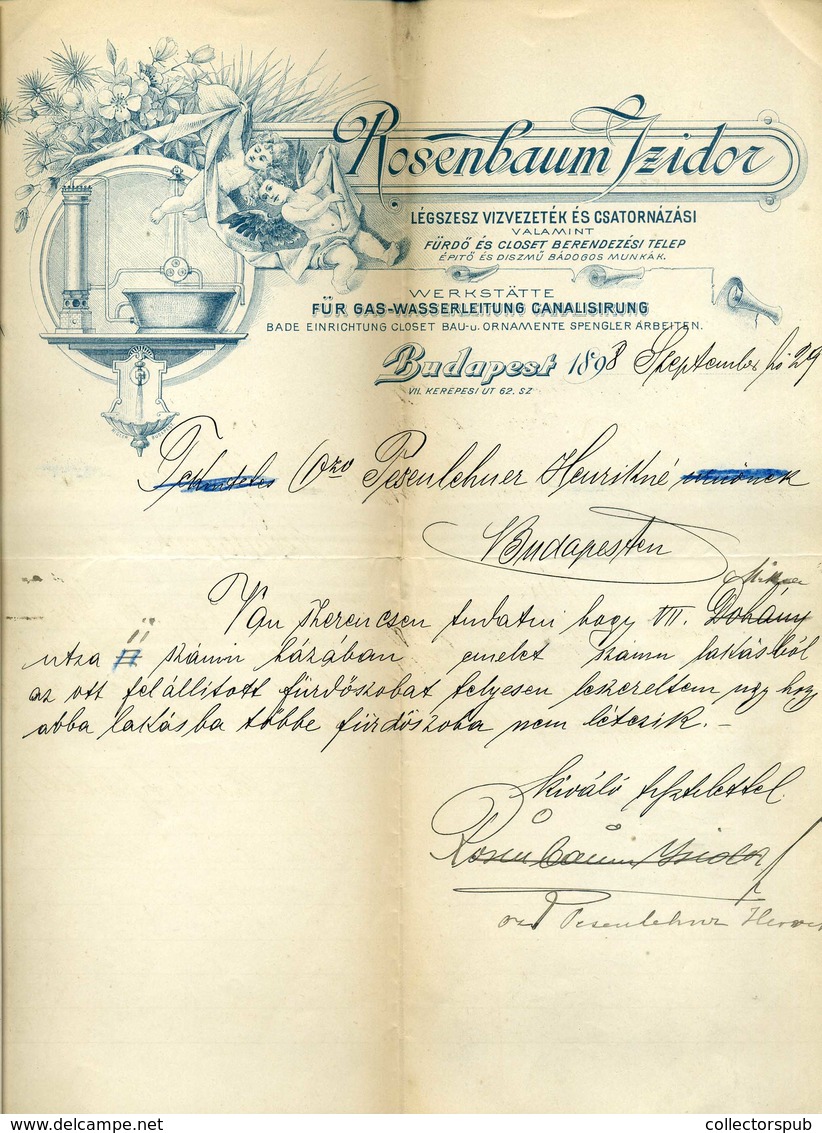 Rosenbaum Izidor
LÉGSZESZ VIZVEZETÉK ÉS CSATORNÁZÁSI
VALAMINT
FÜRDŐ ÉS CLOSET BERENDEZÉSI TELEP
ÉPITŐ ÉS DISZMŰ BÁDOGOS MUNKÁK.
WERKSTÄTTE
FÜR GAS-WASSERLEITUNG CANALISIRUNG
BADE EINRICHTUNG CLOSET BAU-u. ORNAMENTE SPENGLER ARBEITEN.
Budapest 1898 September hó 29
VII. KEREPESI UT 62. SZ.
Tekintetes Özv Pesenlehner Henrikné
Budapesten
Van szerencsém tudatni hogy VII. Dohány
utza II számu házában emelet számu lakásból
az ott felállitott fürdőszobát teljesen leszereltem ugy hogy
abba lakásba többe fürdőszoba nem létezik. —
Kiváló tisztelettel
Rosenbaum Izidor
özv Pesenlehner
collectorspub